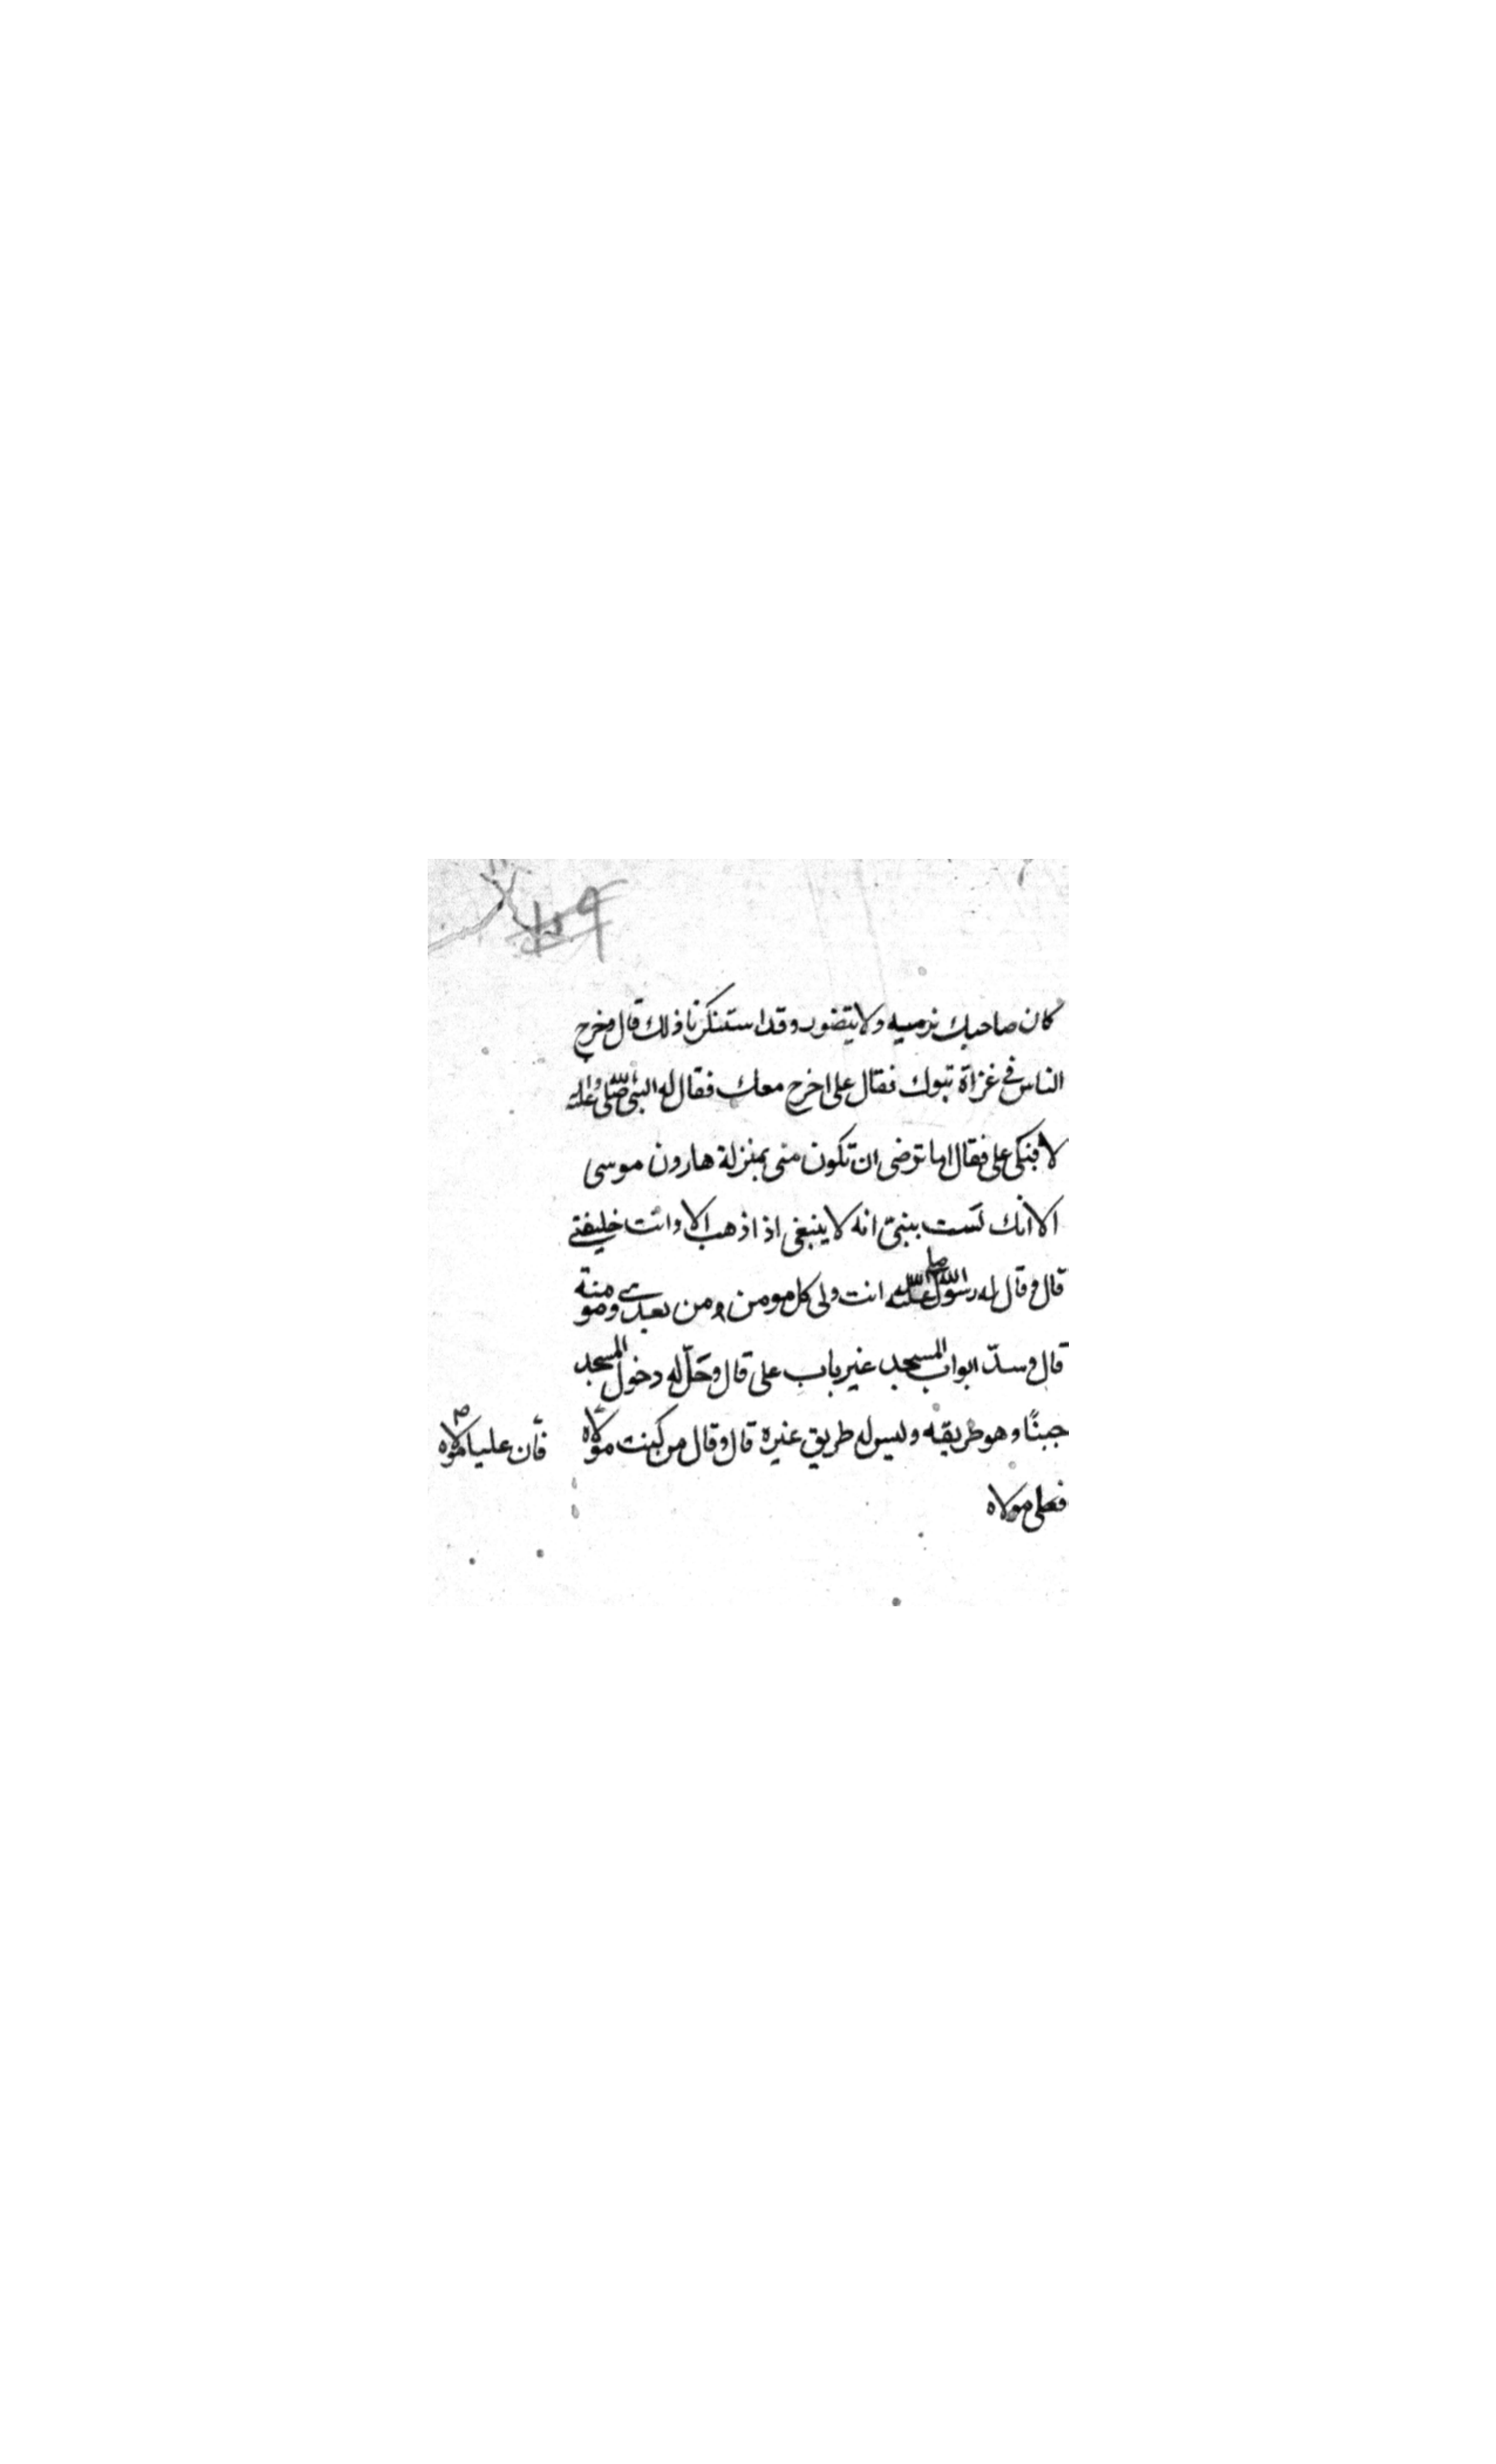 كان صاحبك نرميه ولا يتضور وقد استنكرنا ذلك قال وخرج
الناس في غزاة تبوك فقال علي اخرج معك فقال له النبي صلى الله عليه
لا فبكى علي فقال اما ترضى ان تكون مني بمنزلة هارون موسى
الا انك لست بنبي انه لا ينبغي اذ اذهب الا وانت خليفتي
قال وقال له رسول الله صلى الله عليه انت ولي كل مومن من بعدي ومومنة
قال وسدّ ابواب المسجد غير باب علي قال وحَلّ له دخول المسجد
جنبًا وهو طريقه وليس له طريق غيره قال وقال من كنت مولاه
فعلي مولاه
فان عليا مولاه